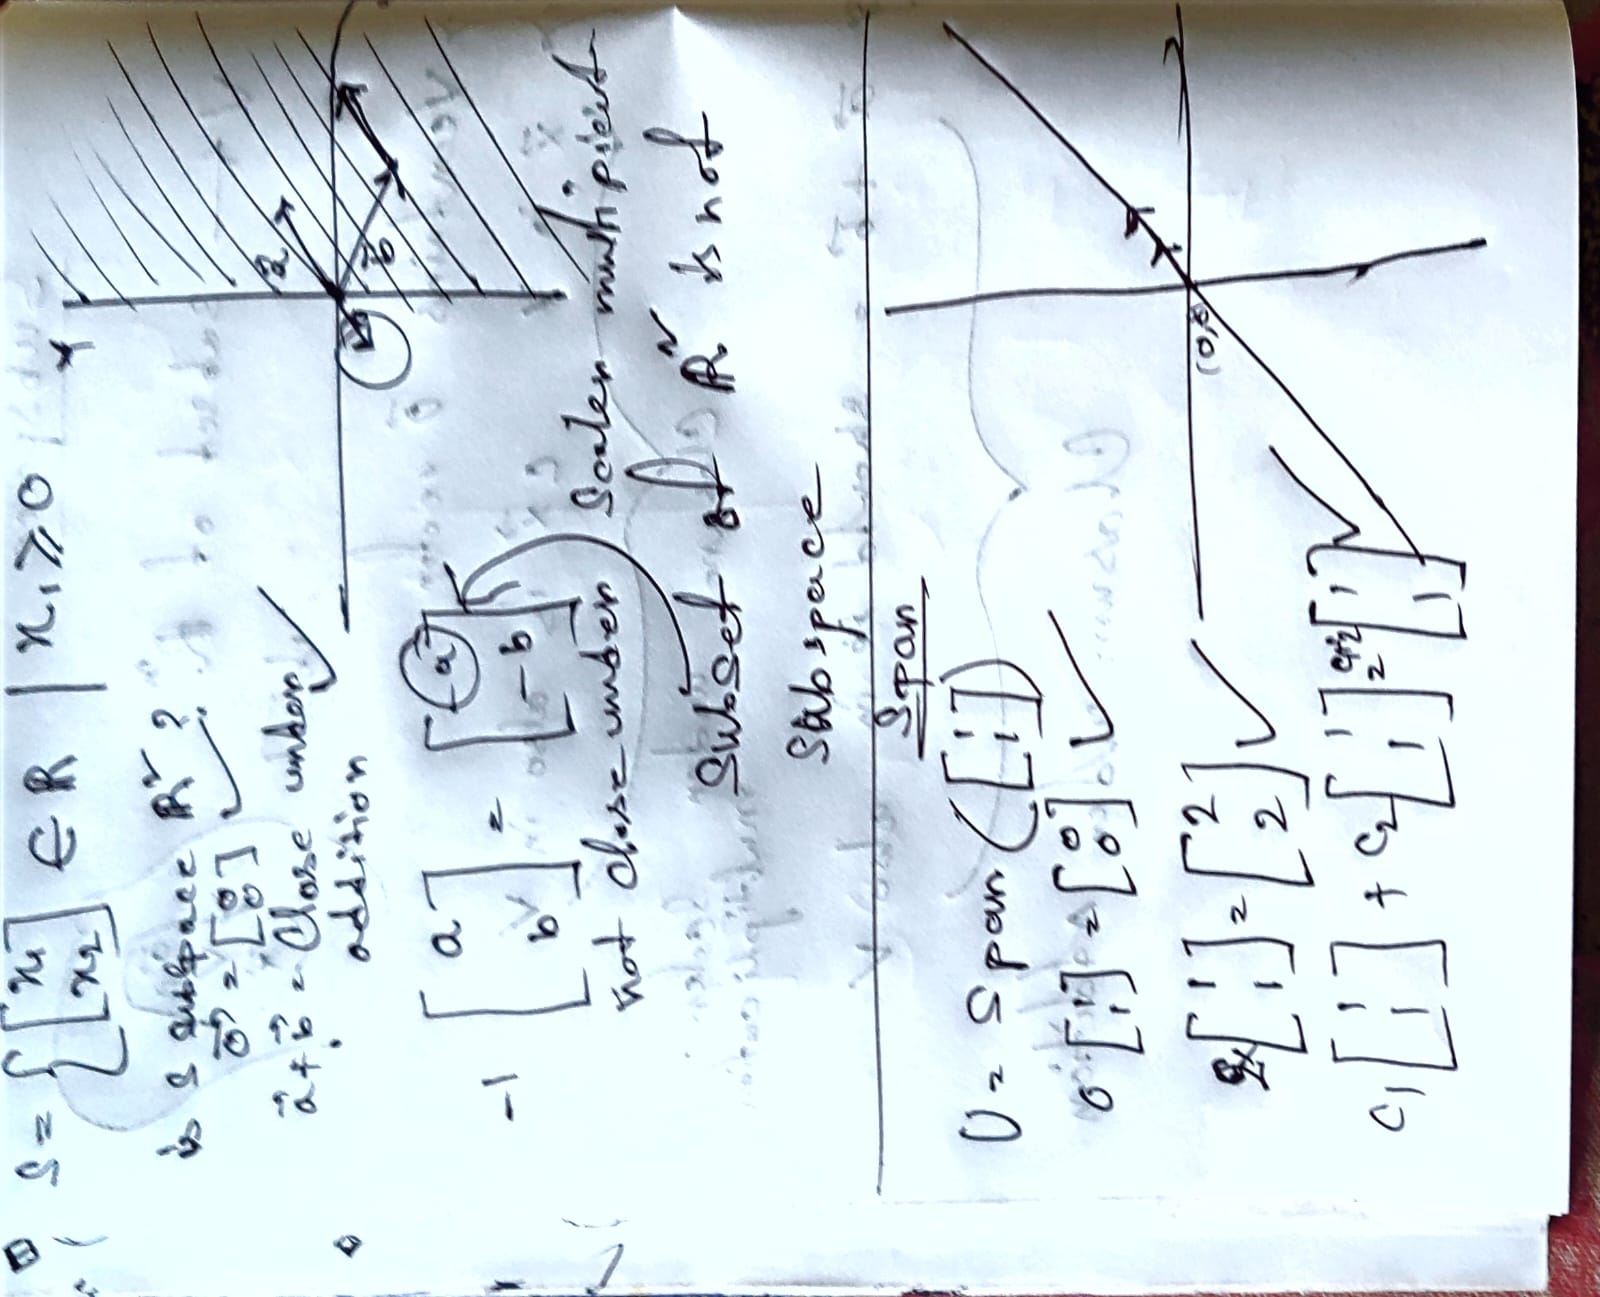 S = { [x₁ x₂] ∈ R | x₁ ≥ 0
is S subspace R² ?
0⃗ = [0 0] ✓
a⃗ + b⃗ = Close under ✓
addition
a⃗
b⃗
-1 [a b] = [-a -b]
not close under Scaler multipient
Subset of R² is not
Subspace
Span
U = Span ([1 1])
0 [1 1] = [0 0] ✓
[1 1] = [2 2] ✓
C₁ [1 1] + C₂ [1 1] = C₁+C₂ [1 1] ✓
(0,0)